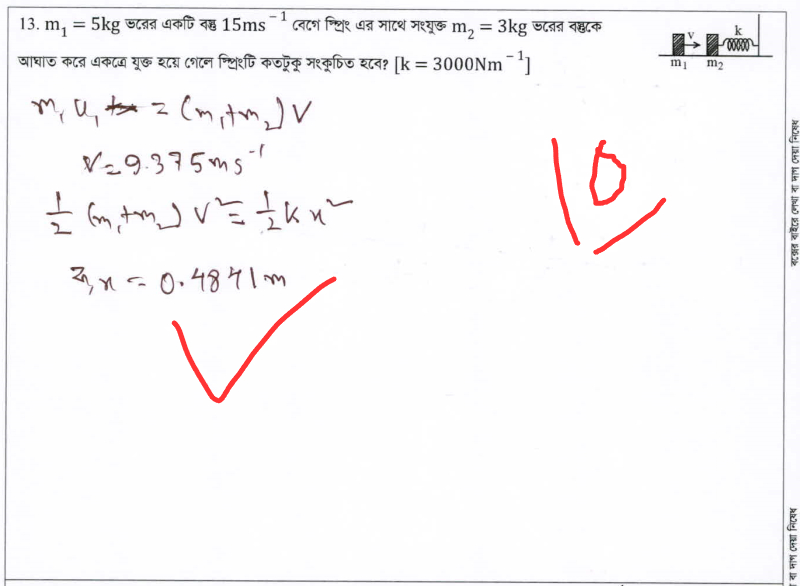 13. m₁ = 5kg ভরের একটি বস্তু 15ms⁻¹ বেগে স্প্রিং এর সাথে সংযুক্ত m₂ = 3kg ভরের বস্তুকে
আঘাত করে একত্রে যুক্ত হয়ে গেলে স্প্রিংটি কতটুকু সংকুচিত হবে? [k = 3000Nm⁻¹]
v k
m₁ m₂
m₁u₁ = (m₁+m₂)v
v = 9.375ms⁻¹
½ (m₁+m₂) v² = ½ k x²
∴, x = 0.4841m
10
বক্সের বাইরে লেখা বা দাগ দেয়া নিষেধ
বা দাগ দেয়া নিষেধ